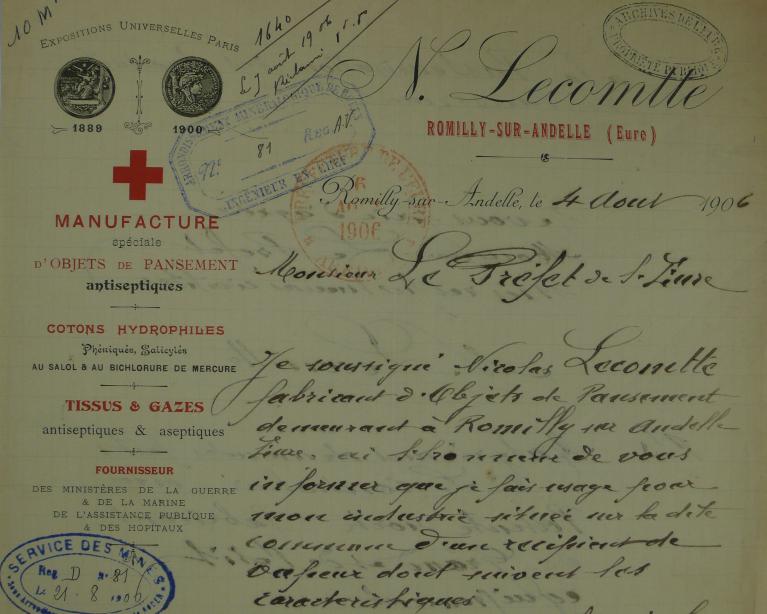 10 M
EXPOSITIONS UNIVERSELLES PARIS
1889
1900
1640
ARCHIVES DE L'EURE
PROPRIÉTÉ PUBLIQUE
N. Lecomtte
ROMILLY-SUR-ANDELLE (Eure)
ARRONDISSEMENT MINÉRALOGIQUE DE
N° 81 Reg AV
INGÉNIEUR EN CHEF
PRÉFECTURE DE L'EURE
6
1906
Romilly-sur-Andelle, le 4 Aout 1906
MANUFACTURE
spéciale
D'OBJETS DE PANSEMENT
antiseptiques
COTONS HYDROPHILES
Phéniqués, Salicylés
AU SALOL & AU BICHLORURE DE MERCURE
TISSUS & GAZES
antiseptiques & aseptiques
FOURNISSEUR
DES MINISTÈRES DE LA GUERRE
& DE LA MARINE
DE L'ASSISTANCE PUBLIQUE
& DES HOPITAUX
SERVICE DES MINES
Reg D N° 81
Le 21-8 1906
Monsieur Le Préfet de l'Eure
Je soussigné Nicolas Lecomtte
fabricant d'Objets de Pansement
demeurant à Romilly sur Andelle
Eure. ai l'honneur de vous
informer que je fais usage pour
mon industrie située sur la dite
commune d'un recipient de
vapeur dont suivent les
caractéristiques